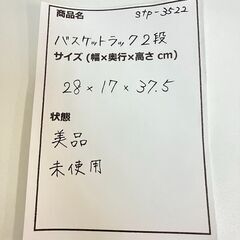 商品名 stp-3522
バスケットラック2段
サイズ (幅×奥行×高さ cm)
28×17×37.5
状態
美品
未使用